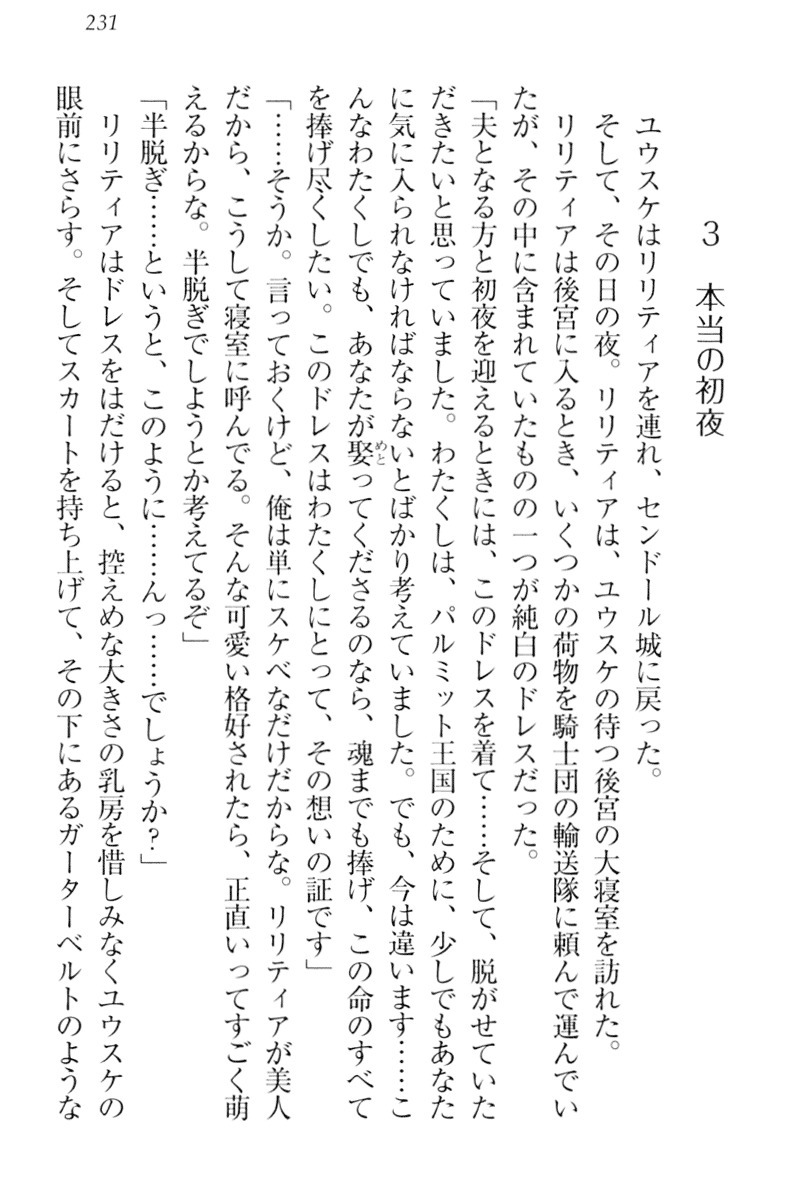 231
3 本当の初夜
ユウスケはリリティアを連れ、センドール城に戻った。
そして、その日の夜。リリティアは、ユウスケの待つ後宮の大寝室を訪れた。
リリティアは後宮に入るとき、いくつかの荷物を騎士団の輸送隊に頼んで運んでい
たが、その中に含まれていたものの一つが純白のドレスだった。
「夫となる方と初夜を迎えるときには、このドレスを着て……そして、脱がせていた
だきたいと思っていました。わたくしは、パルミット王国のために、少しでもあなた
に気に入られなければならないとばかり考えていました。でも、今は違います……こ
んなわたくしでも、あなたが娶ってくださるのなら、魂までも捧げ、この命のすべて
を捧げ尽くしたい。このドレスはわたくしにとって、その想いの証です」
「……そうか。言っておくけど、俺は単にスケベなだけだからな。リリティアが美人
だから、こうして寝室に呼んでる。そんな可愛い格好されたら、正直いってすごく萌
えるからな。半脱ぎでしようとか考えてるぞ」
「半脱ぎ……というと、このように……んっ……でしょうか?」
リリティアはドレスをはだけると、控えめな大きさの乳房を惜しみなくユウスケの
眼前にさらす。そしてスカートを持ち上げて、その下にあるガーターベルトのような